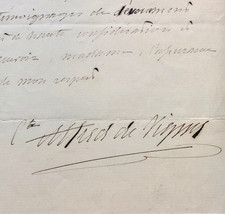 témoignages de dévouement
haute considération
madame, l'assurance
de mon respect
Cte Alfred de Vigny